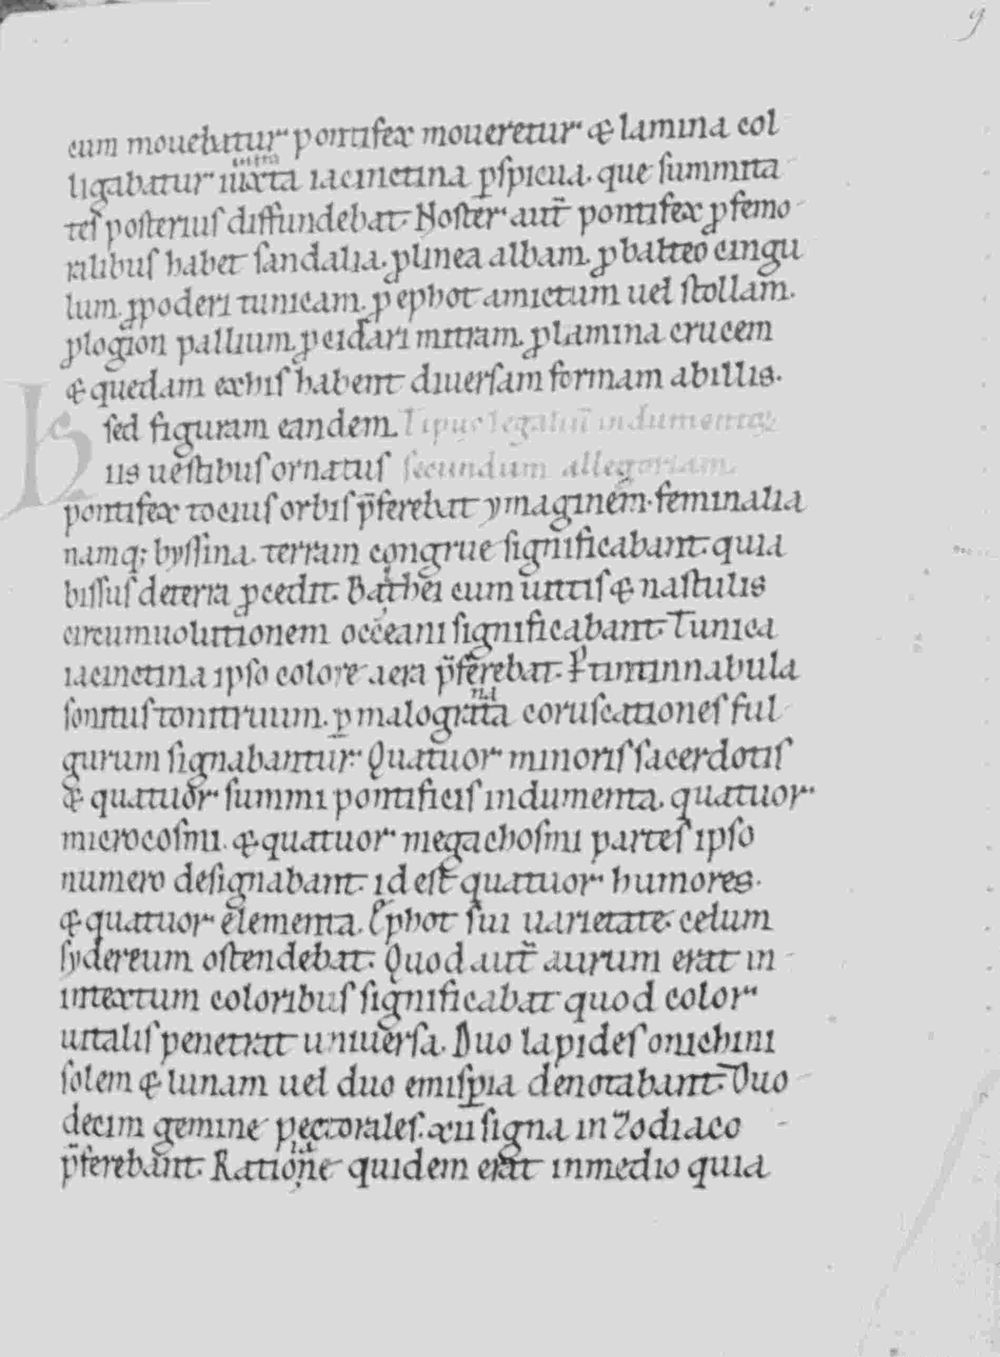 9
cum mouebatur pontifex moueretur & lamina col
intra
ligabatur iuxta iacinctina ꝑspicua. que summita
tes posterius diffundebat. Noster aut̄ pontifex ꝓ femo
ralibus habet sandalia. ꝓ linea albam. ꝓ balteo cingu
lum. ꝓ poderi tunicam. ꝓ ephot amictum uel stollam.
ꝓ logion pallium. ꝓ cidari mitram. ꝓ lamina crucem
& quedam ex his habent diuersam formam ab illis.
sed figuram eandem. Tipus legaliū indumentoꝝ
His uestibus ornatus secundum allegoriam.
pontifex tocius orbis p̄ferebat ymaginem. feminalia
namq; byssina. terram congrue significabant. quia
bissus de terra ꝓcedit. Bathei cum uittis & nastulis
circumuolutionem occeani significabant. Tunica
iacinctina ipso colore aera p̄ferebat. Ꝑ tintinnabula
na
sonitus tonitruum. ꝑ malograta coruscationes ful
gurum signabantur. Quatuor minoris sacerdotis
& quatuor summi pontificis indumenta. quatuor
microcosmi. & quatuor megachosmi partes ipso
numero designabant. id est quatuor humores.
& quatuor elementa. Ephot sui uarietate celum
sydereum ostendebat. Quod aut̄ aurum erat in
intextum coloribus significabat quod color
uitalis penetrat uniuersa. Duo lapides onichini
solem & lunam uel duo emisꝑia denotabant. Duo
decim gemine pectorales. xii signa in zodiaco
p̄ferebant. Ratione quidem erat in medio quia